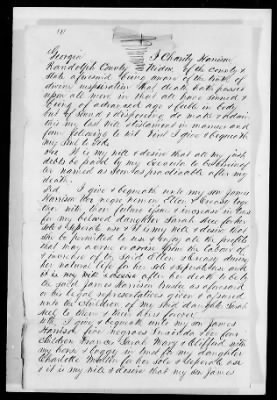 Georgia } I Charity Harrison
Randolph County } Widow of the County &
State aforesaid being aware of the truth of
divine inspiration that death hath passed
upon all men in that all have sinned &
being of advanced age & feeble in body
but of sound & disposing do make & ordain
this my last will & testament in manner and
form following to wit First I give & bequeath
my Soul to God
2nd It is my will & desire that all my just
debts be paid by my Executor to be hereinafter
named as soon as practicable after my
death
3rd I give & bequeath unto my son James
Harrison the negro women Ellen & Creasy together
with their future issue & increase in trust
for my beloved daughter Sarah for her
sole & Seperate use & it is my will & desire that
she be permitted to use & enjoy all the profits
that may accrue or arise from the labor of
& increase of the said Ellen & Creasy during
her natural life for her sole & Seperate use and
it is my will & desire after her death to be by
the said James Harrison trustee as aforesaid
or his legal representatives given & apportioned
unto the children of my said daughter Sarah
to them & their heirs forever
4th I give & bequeath unto my son James
Harrison five negroes & her four
children Frances Sarah Mary & with
my horse & buggy in trust for my daughter
Charlotte for her sole & Seperate use
& it is my will & desire that my son James